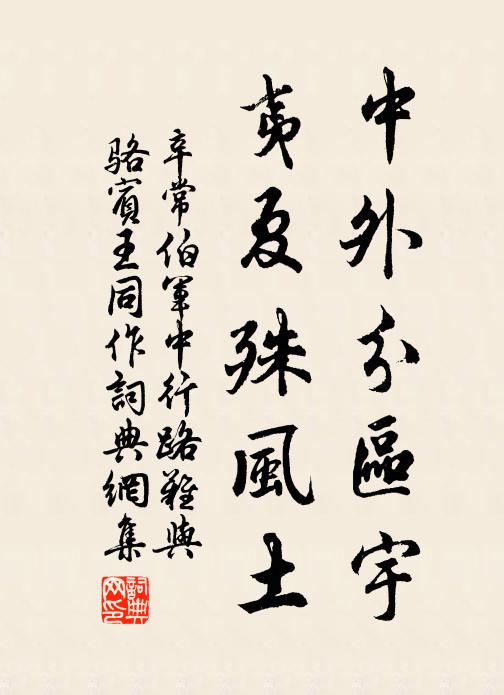 中外分區宇
夷夏殊風土
辛常伯軍中行路難與
駱賓王同作詞典網集
詞典
网印